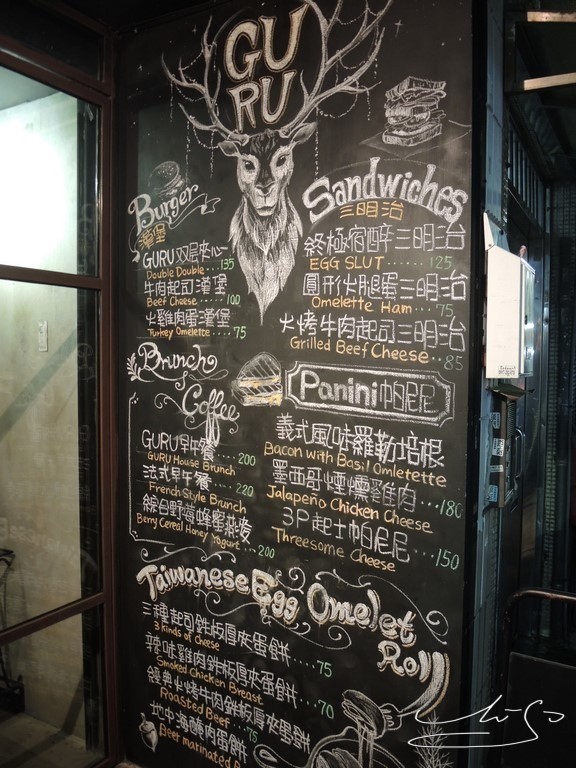 GU
RU
Burger
漢堡
GURU双层夾心
Double Double ····· 135
牛肉起司漢堡
Beef Cheese ······ 100
火雞肉蛋漢堡
Turkey Omelette ···· 75
Sandwiches
三明治
終極宿醉三明治
EGG SLUT ······ 125
圓形火腿蛋三明治
Omelette Ham ···· 75
火烤牛肉起司三明治
Grilled Beef Cheese ·· 85
Brunch
&
Coffee
GURU早午餐
GURU House Brunch ··· 200
法式早午餐
French Style Brunch ··· 220
綜合野莓蜂蜜燕麥
Berry Cereal Honey Yogurt ··· 200
Panini帕尼尼
義式風味羅勒培根
Bacon with Basil Omletette
墨西哥煙燻雞肉 ··· 180
Jalapeño Chicken Cheese
3P起士帕尼尼 ··· 150
Threesome Cheese
Taiwanese Egg Omelet
Roll
三種起司鉄板厚夾蛋餅
3 kinds of Cheese ···· 75
辣味雞肉鉄板厚夾蛋餅
Smoked Chicken Breast ···· 70
經典火烤牛肉鉄板厚夾蛋餅
Roasted Beef ···· 75
地中海醃肉蛋餅
Beef marinated